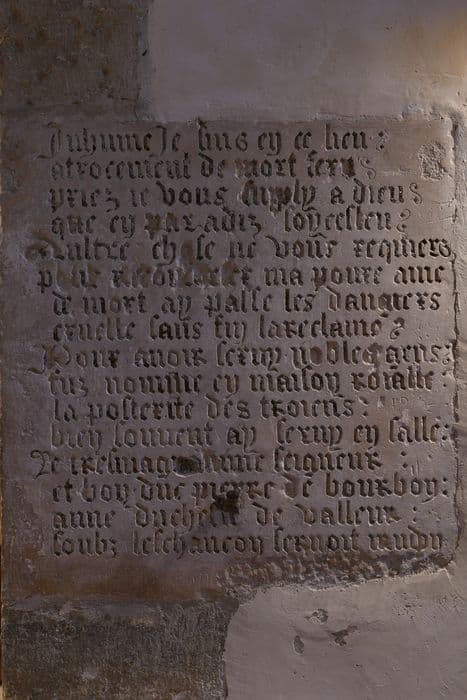 Inhume Je suis ey ce lieu :
atrocement de mort feru :
priez ie vous suply a dieu :
que ey paradiz soye esleu :
Aultre chose ne vous requiers
po ma poure ame
de mort ay passe les dangiers
cruelle sans fin la reclame :
Pour avoir seruy nobles gens :
fuz nomme ey maisoy roialle :
la posterite des troiens :
biey souuent ay seruy ey salle :
Le tresmagnanime seigneur :
et boy duc pierre de bourboy :
anne duchesse de valleur :
soubz leschancoy seruoit